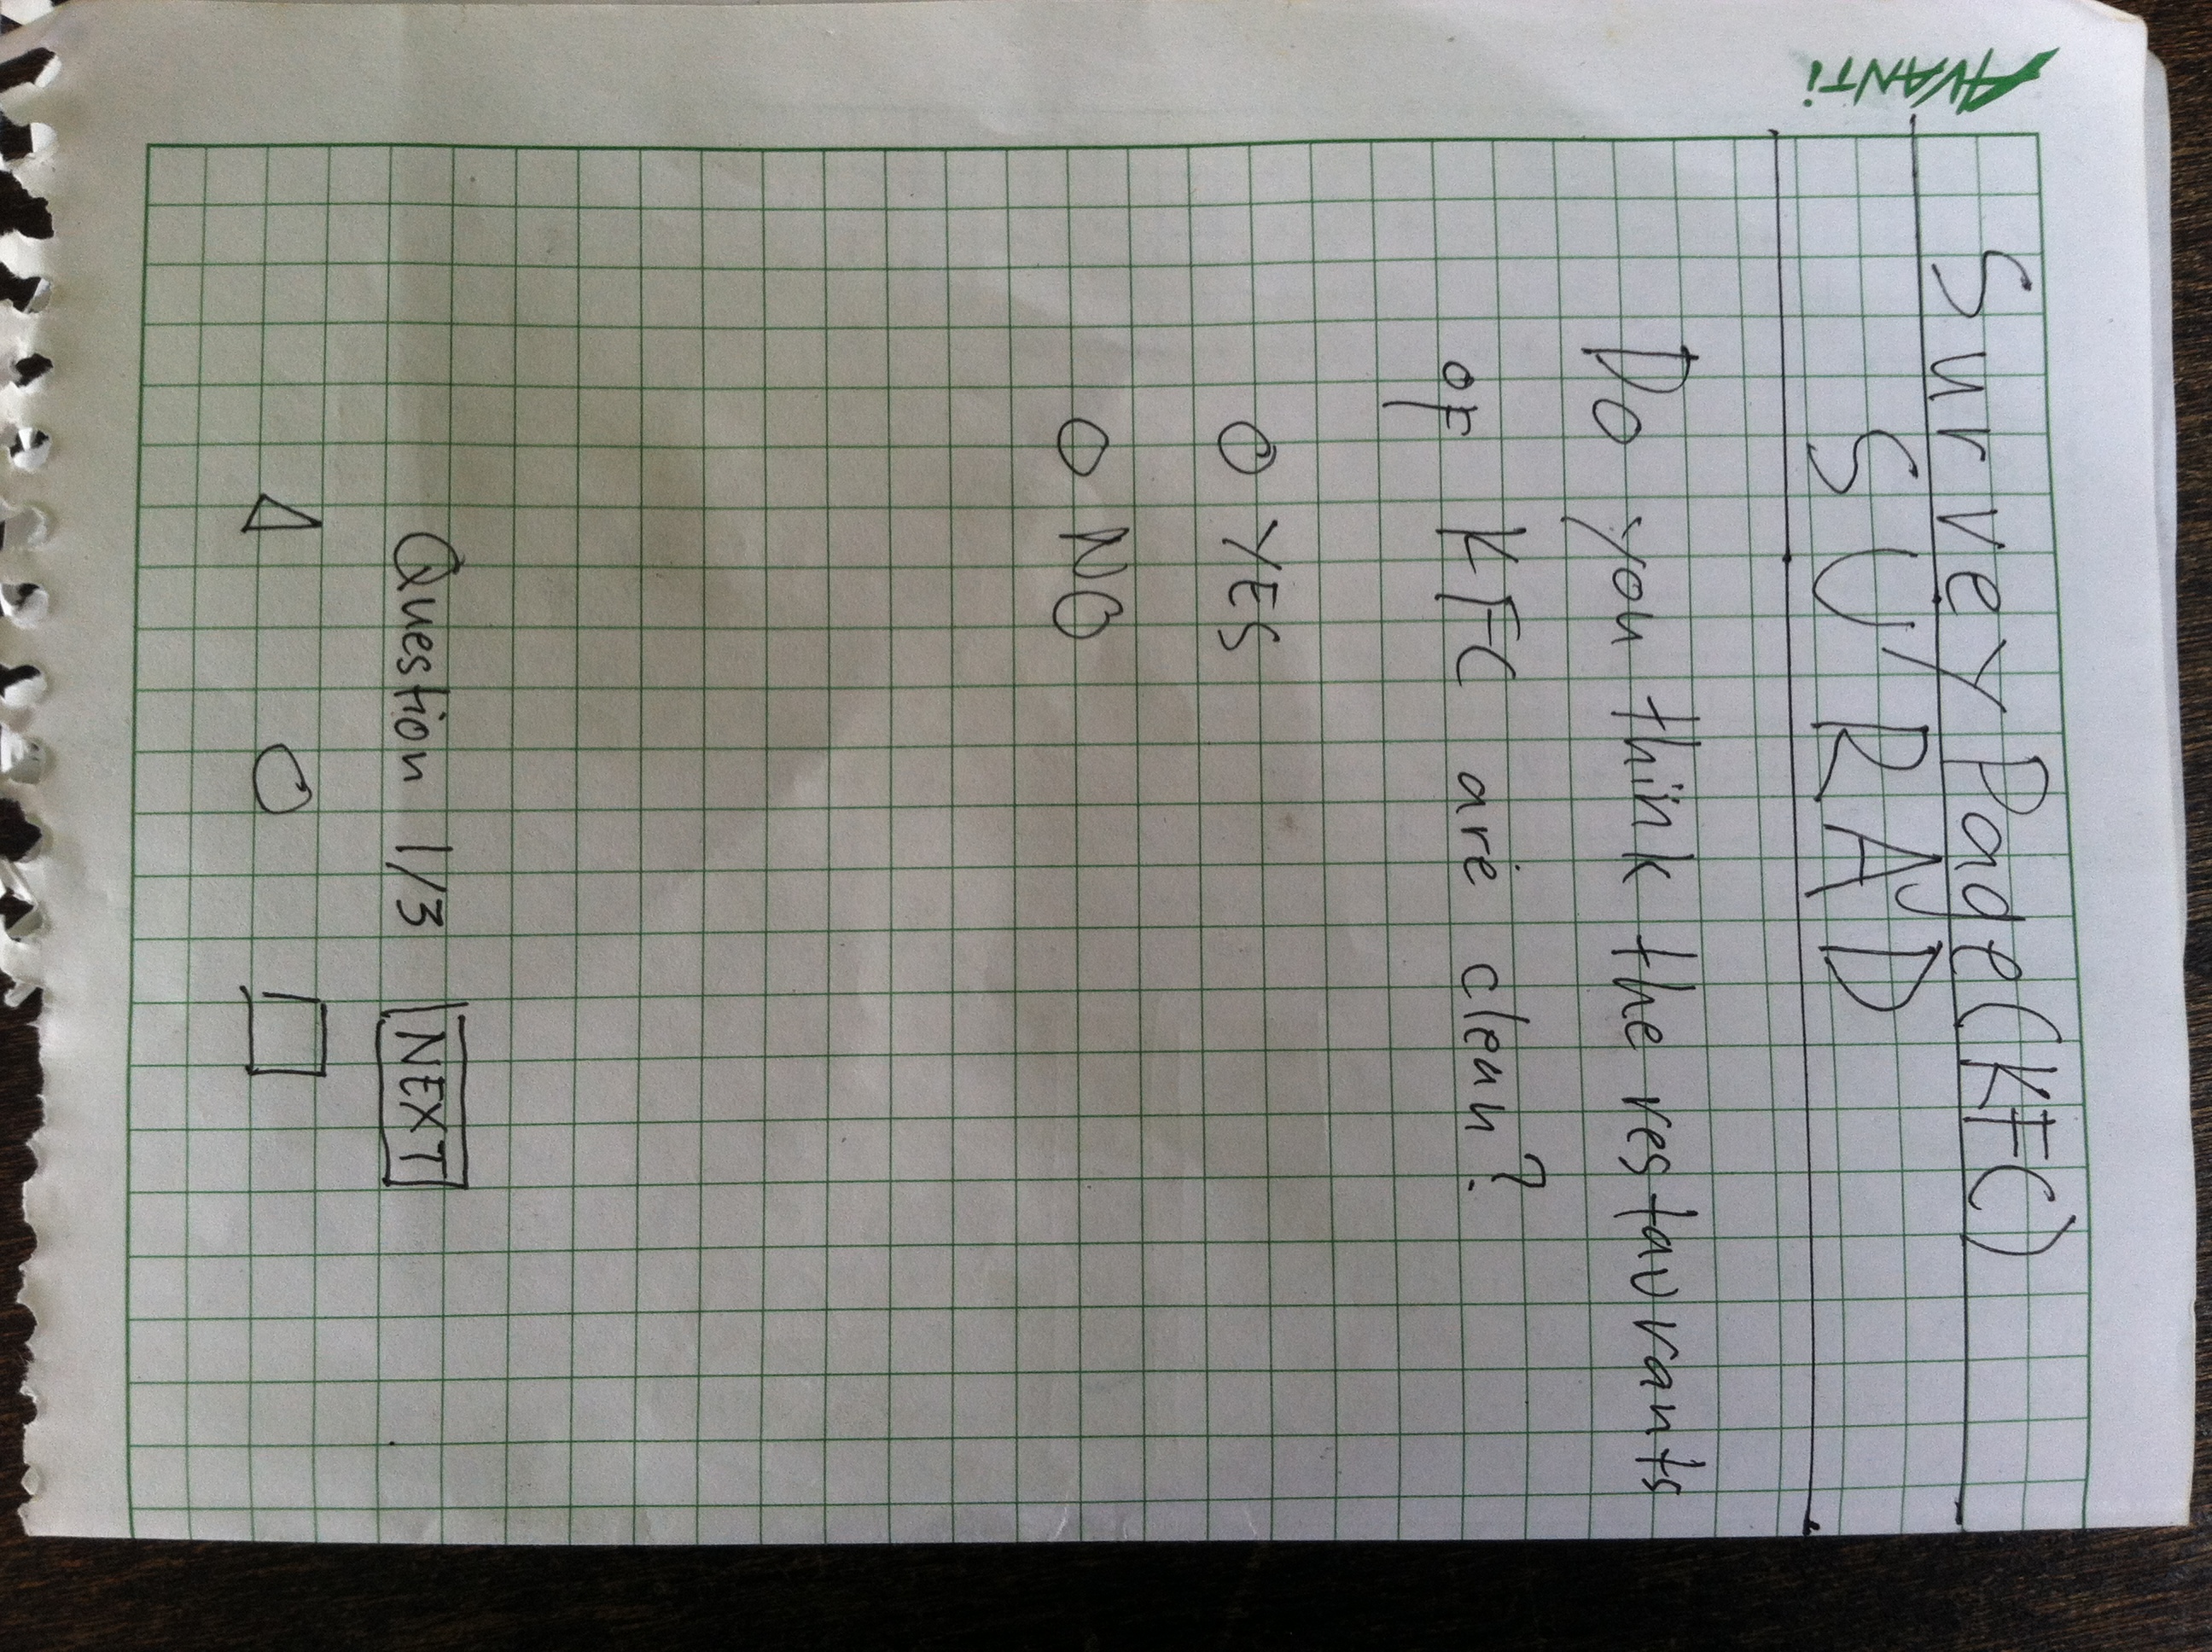 AVANTi
Survey Pade (KFC)
SURAD
Do you think the restaurants
of KFC are clean?
YES
NO
Question 1/3 NEXT